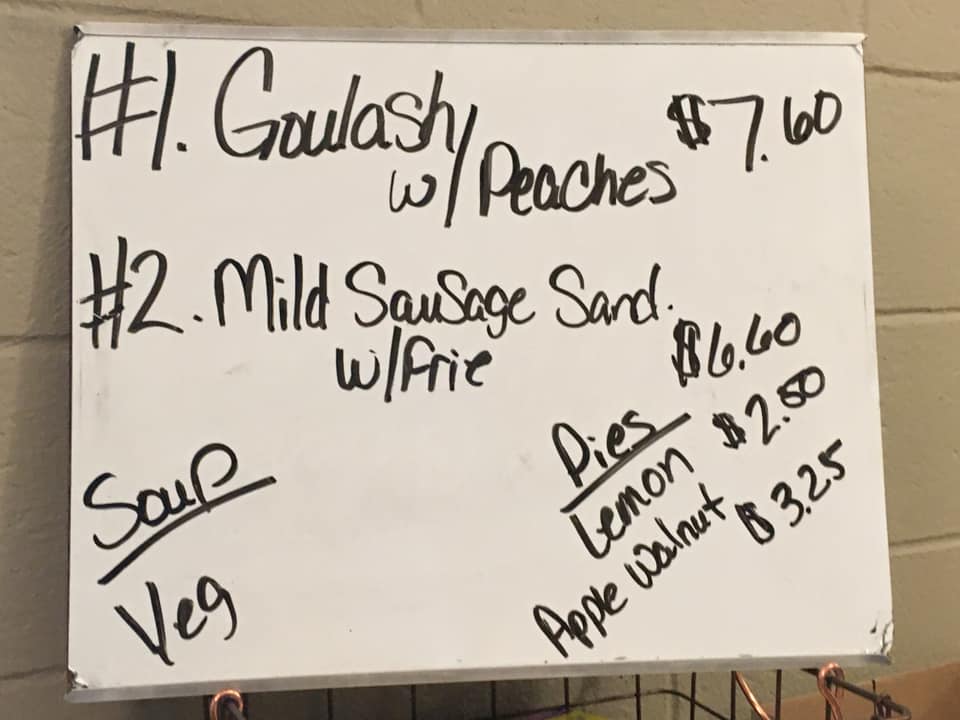 #1. Goulash
w/Peaches $7.60
#2. Mild Sausage Sand.
w/Frie $6.60
Soup
Veg
Pies
Lemon $2.50
Apple Walnut $3.25